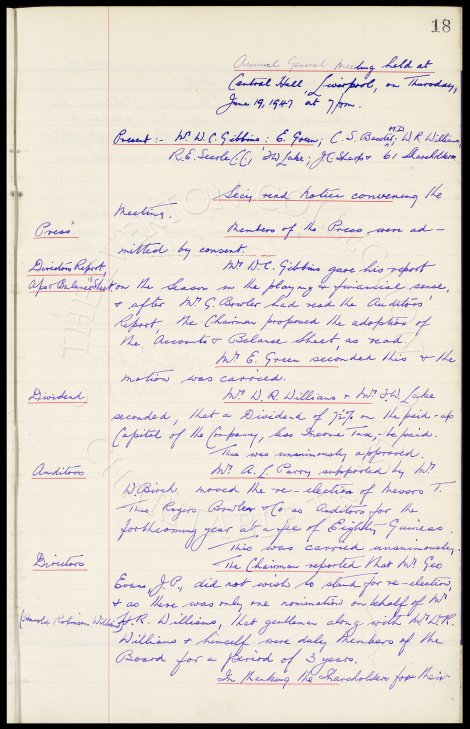 18
Annual General Meeting held at
Central Hall, Liverpool, on Thursday,
June 19, 1947 at 7 pm.
Present:- Mr W.C. Gibbins: E. Green; C.S. Baxter, M.D.; W.R. Williams
R.E. Searle, J.C. Sharp & 61 Shareholders
Secy read Notice convening the
Meeting.
Press Members of the Press were ad-
mitted by consent.
Directors Report, Mr W.C. Gibbins gave his report
A/cs & Balance Sheet on the Season in the playing & financial sense,
& after Mr G. Bowler had read the Auditors'
Report, the Chairman proposed the adoption of
the Accounts & Balance Sheet, as read.
Mr E. Green seconded this & the
motion was carried.
Dividend Mr W.R. Williams & Mr Lake
seconded, that a Dividend of 7½% on the paid-up
Capital of the Company, less Income Tax, be paid.
This was unanimously approved.
Auditors Mr A.L. Parry supported by Mr
W. Birch moved the re-election of Messrs T.
Theo. Rogers Bowler & Co as Auditors for the
forthcoming year at a fee of Eighty Guineas.
This was carried unanimously.
Directors The Chairman reported that Mr Geo
Evans J.P., did not wish to stand for re-election,
& as there was only one nomination on behalf of Mr
(Harold Robinson Williams) H.R. Williams, that gentleman along with Mr W.R.
Williams & himself were duly members of the
Board for a period of 3 years.
In thanking the Shareholders for their